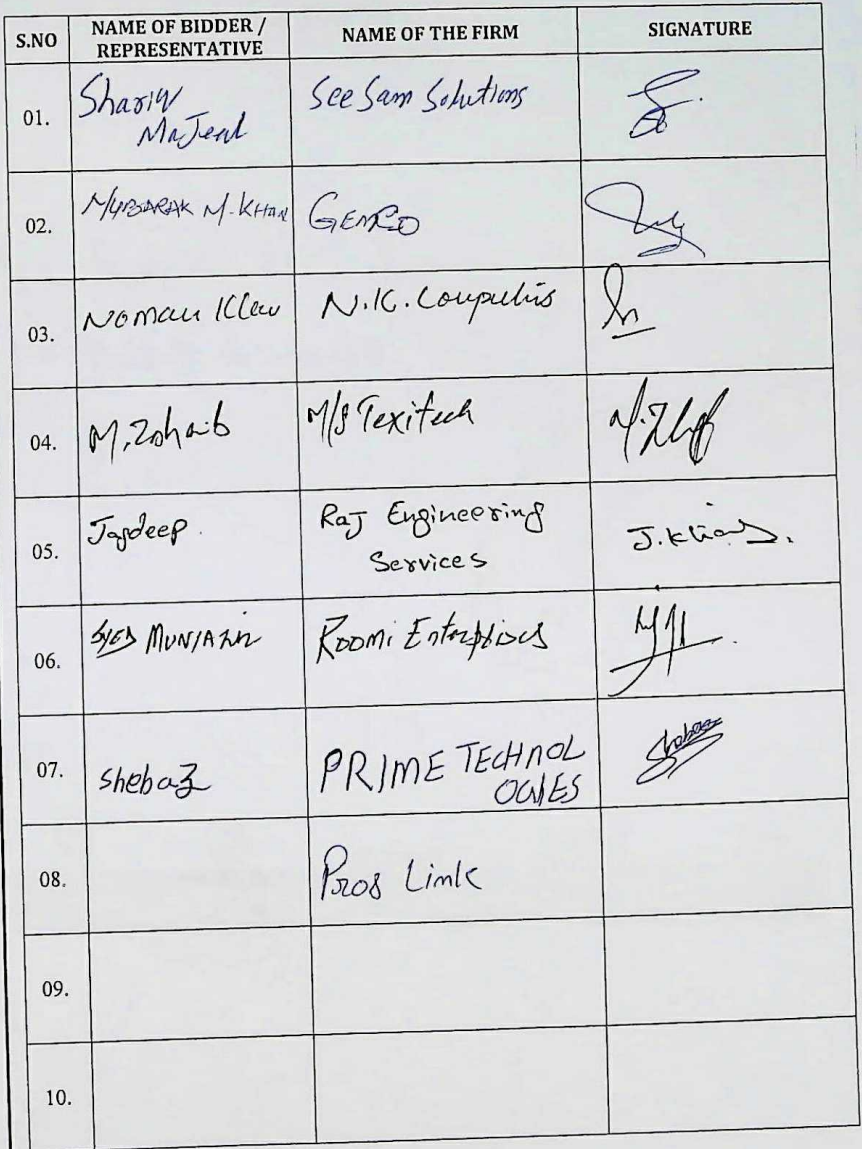 S.NO
NAME OF BIDDER /
REPRESENTATIVE
NAME OF THE FIRM
SIGNATURE
01.
MaJeed
See Sam Solutions
02.
MUBARAK M. KHAN
GEMCO
03.
Noman Khan
N.K. Computers
04.
M. Zohaib
M/S Texitech
05.
Jagdeep.
Raj Engineering
Services
06.
SYED
Roomi Enterprises
07.
Shebaz
PRIME TECHNOL
OGIES
08.
Pros Link
09.
10.